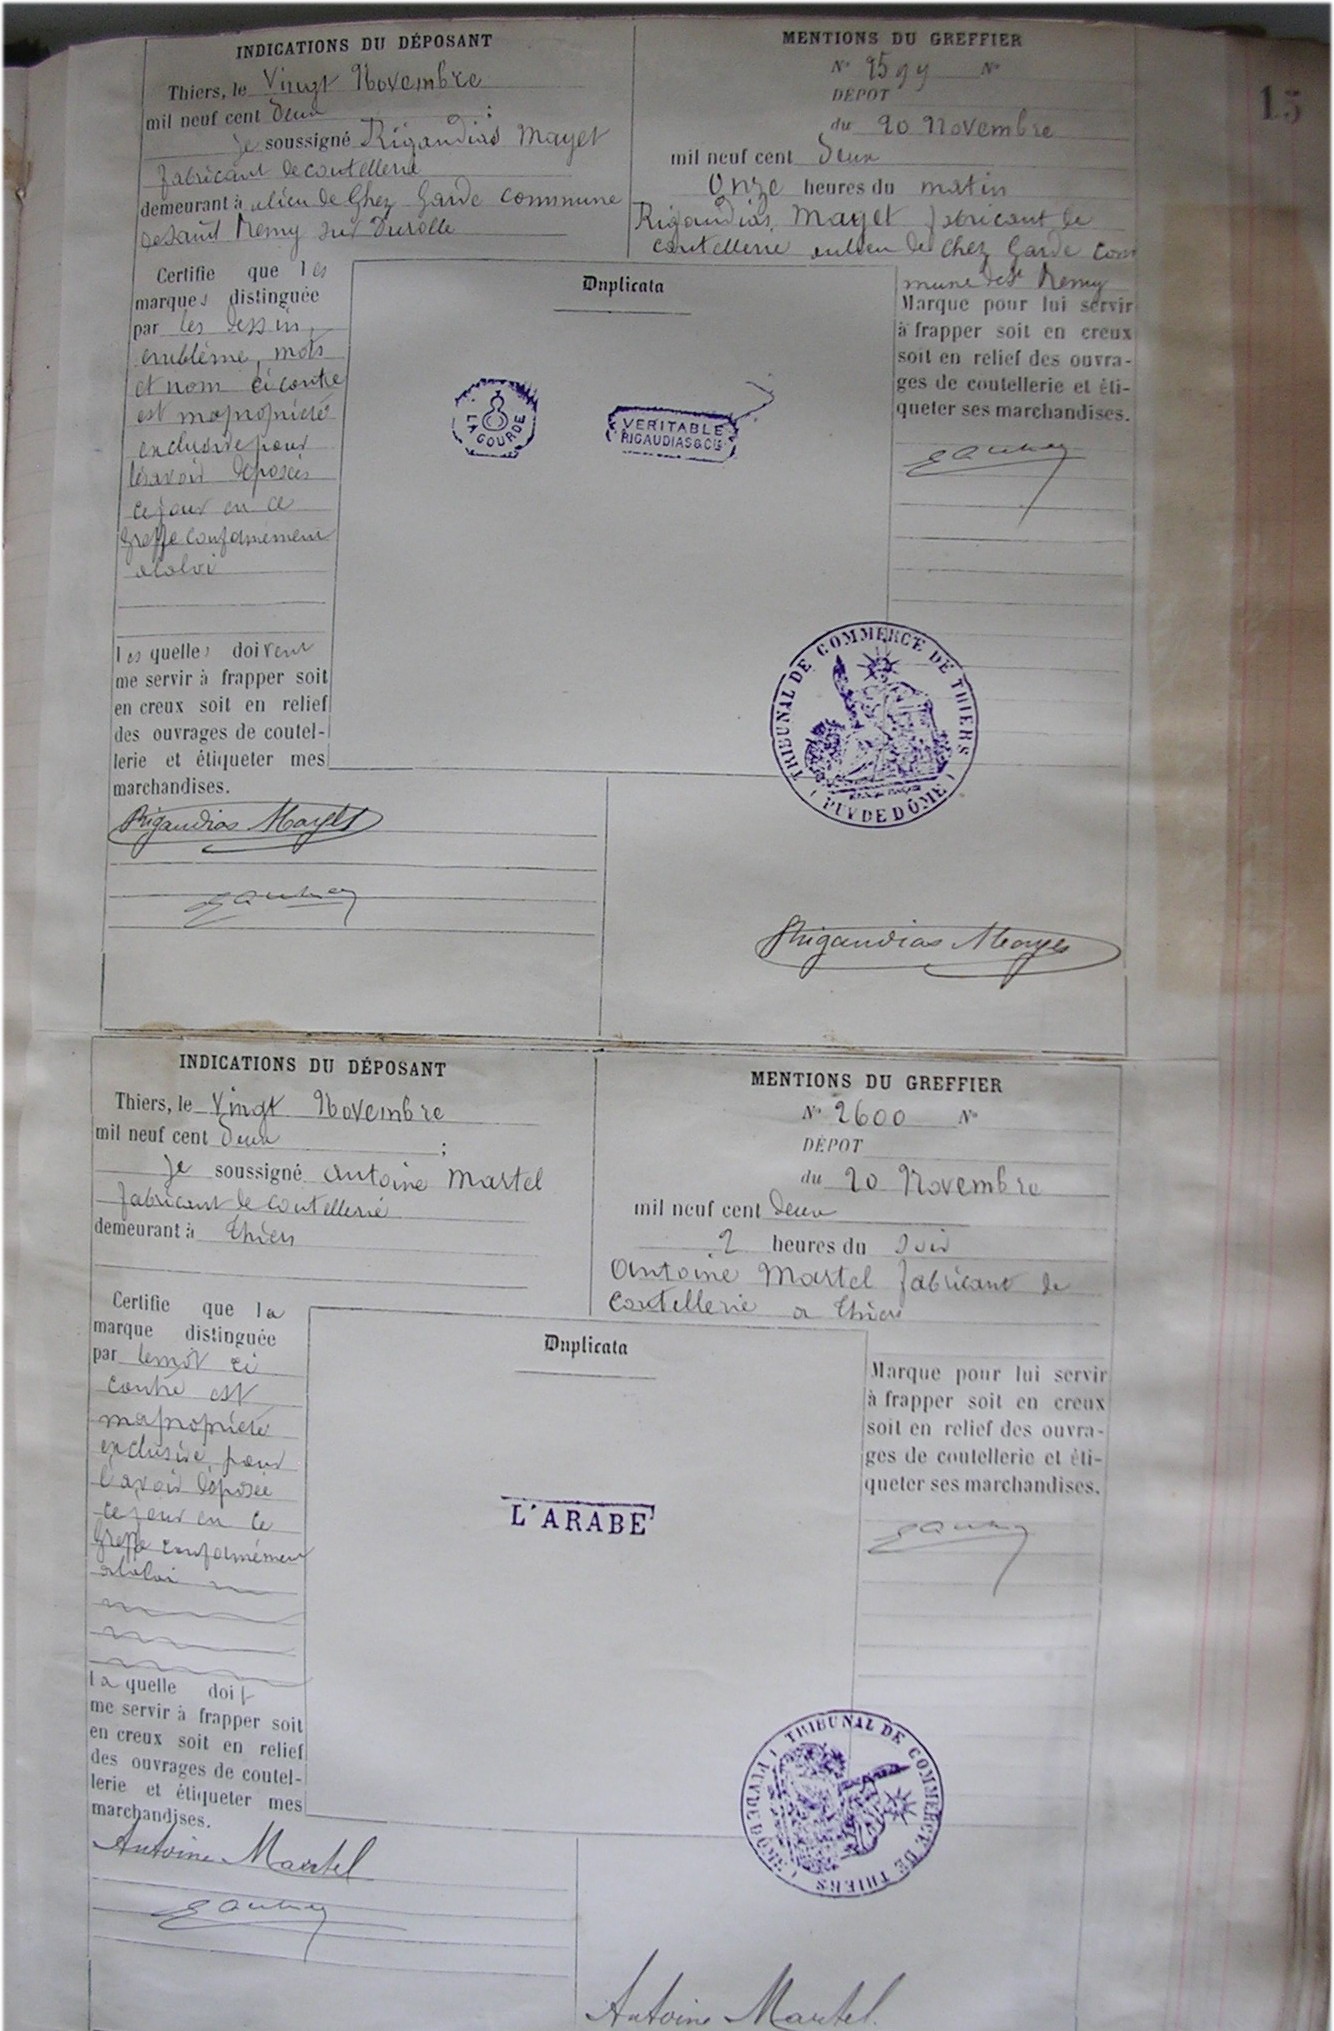 15
INDICATIONS DU DÉPOSANT
Thiers, le Vingt Novembre
mil neuf cent Deux ;
Je soussigné Rigaudias Mayet
fabricant de coutellerie
demeurant à au lieu de Chez Garde commune
de Saint Remy sur Durolle
Certifie que les
marques distinguée
par les dessin,
emblème, mots
et nom ci contre
est ma propriété
exclusive pour
les avoir déposées
ce jour en ce
Greffe conformément
a la loi
les quelles doivent
me servir à frapper soit
en creux soit en relief
des ouvrages de coutel-
lerie et étiqueter mes
marchandises.
Rigaudias Mayet
MENTIONS DU GREFFIER
N° 2599 N°
DÉPOT
du 20 Novembre
mil neuf cent Deux
Onze heures du matin
Rigaudias Mayet fabricant de
coutellerie au lieu de Chez Garde com
mune de St Remy
Duplicata
LA GOURDE
VERITABLE
RIGAUDIAS & CIE
Marque pour lui servir
à frapper soit en creux
soit en relief des ouvra-
ges de coutellerie et éti-
queter ses marchandises.
TRIBUNAL DE COMMERCE DE THIERS
( PUY DE DÔME )
Rigaudias Mayet
INDICATIONS DU DÉPOSANT
Thiers, le Vingt Novembre
mil neuf cent Deux ;
Je soussigné Antoine Martel
fabricant de coutellerie
demeurant à Thiers
Certifie que la
marque distinguée
par le mot ci
contre est
ma propriété
exclusive pour
l'avoir déposée
ce jour en ce
Greffe conformément
a la loi
la quelle doit
me servir à frapper soit
en creux soit en relief
des ouvrages de coutel-
lerie et étiqueter mes
marchandises.
Antoine Martel
MENTIONS DU GREFFIER
N° 2600 N°
DÉPOT
du 20 Novembre
mil neuf cent Deux
2 heures du Soir
Antoine Martel fabricant de
Coutellerie a Thiers
Duplicata
L'ARABE
Marque pour lui servir
à frapper soit en creux
soit en relief des ouvra-
ges de coutellerie et éti-
queter ses marchandises.
TRIBUNAL DE COMMERCE DE THIERS
( PUY DE DÔME )
Antoine Martel